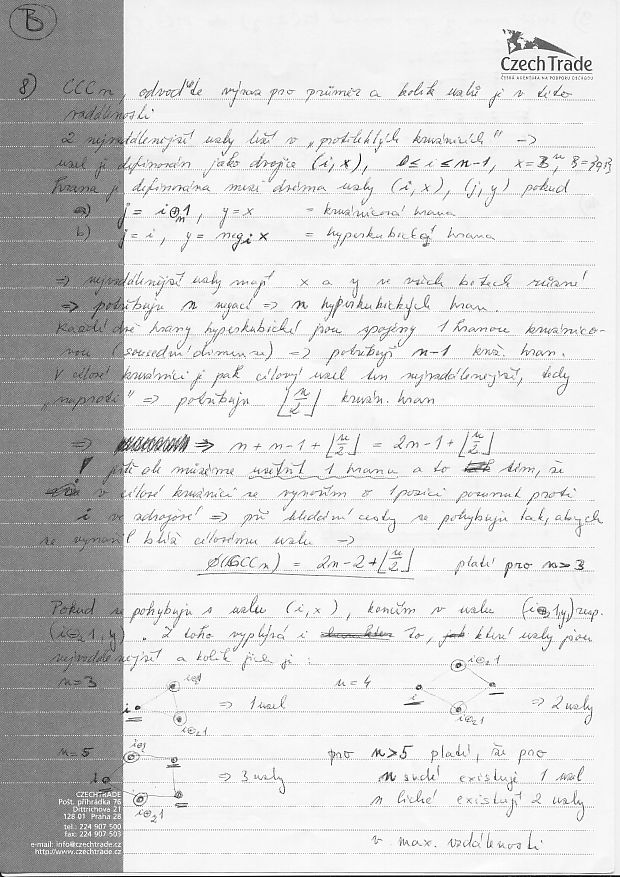 B
CzechTrade
ČESKÁ AGENTURA NA PODPORU OBCHODU
8) CCCn, odvoďte výraz pro průměr a kolik uzlů je v této
vzdálenosti
2 nejvzdálenější uzly leží v „protilehlých kružnicích" →
uzel je definován jako dvojice (i, x), 0 ≤ i ≤ n-1, x = Bⁿ, B = {0,1}
hrana je definována mezi dvěma uzly (i, x), (j, y) pokud
a) j = i ⊕n 1, y = x = kružnicová hrana
b) j = i, y = negi x = hyperkubická hrana
⇒ nejvzdálenější uzly mají x a y ve všech bitech různé
⇒ potřebuju n negací ⇒ n hyperkubických hran.
Každé dvě hrany hyperkubické jsou spojeny 1 hranou kružnico-
vou (sousední dimenze) ⇒ potřebuji n-1 kruž. hran.
V cílové kružnici je pak cílový uzel ten nejvzdálenější, tedy
„naproti" ⇒ potřebuju ⌊n/2⌋ kružn. hran
⇒ n + n-1 + ⌊n/2⌋ = 2n-1 + ⌊n/2⌋
ještě ale můžeme ušetřit 1 hranu a to tím, že
v cílové kružnici se vynořím o 1 pozici posunut proti
i ve zdrojové ⇒ při hledání cesty se pohybuju tak, abych
se vynořil blíž cílovému uzlu →
∅(CCCn) = 2n-2+⌊n/2⌋ platí pro n>3
Pokud se pohybuju s uzlu (i, x), končím v uzlu (i⊕1, y) resp.
(i⊖1, y). Z toho vyplývá i to, které uzly jsou
nejvzdálenější a kolik jich je:
n=3 i⊕1 i ⇒ 1 uzel n=4 i⊖1 i i⊕1 ⇒ 2 uzly
n=5 i⊕1 i i⊖1 ⇒ 3 uzly pro n>5 platí, že pro
n sudé existuje 1 uzel
n liché existují 2 uzly
v max. vzdálenosti
CZECHTRADE
Pošt. přihrádka 76
Dittrichova 21
128 01 Praha 28
tel.: 224 907 500
fax: 224 907 503
e-mail: info@czechtrade.cz
http://www.czechtrade.cz